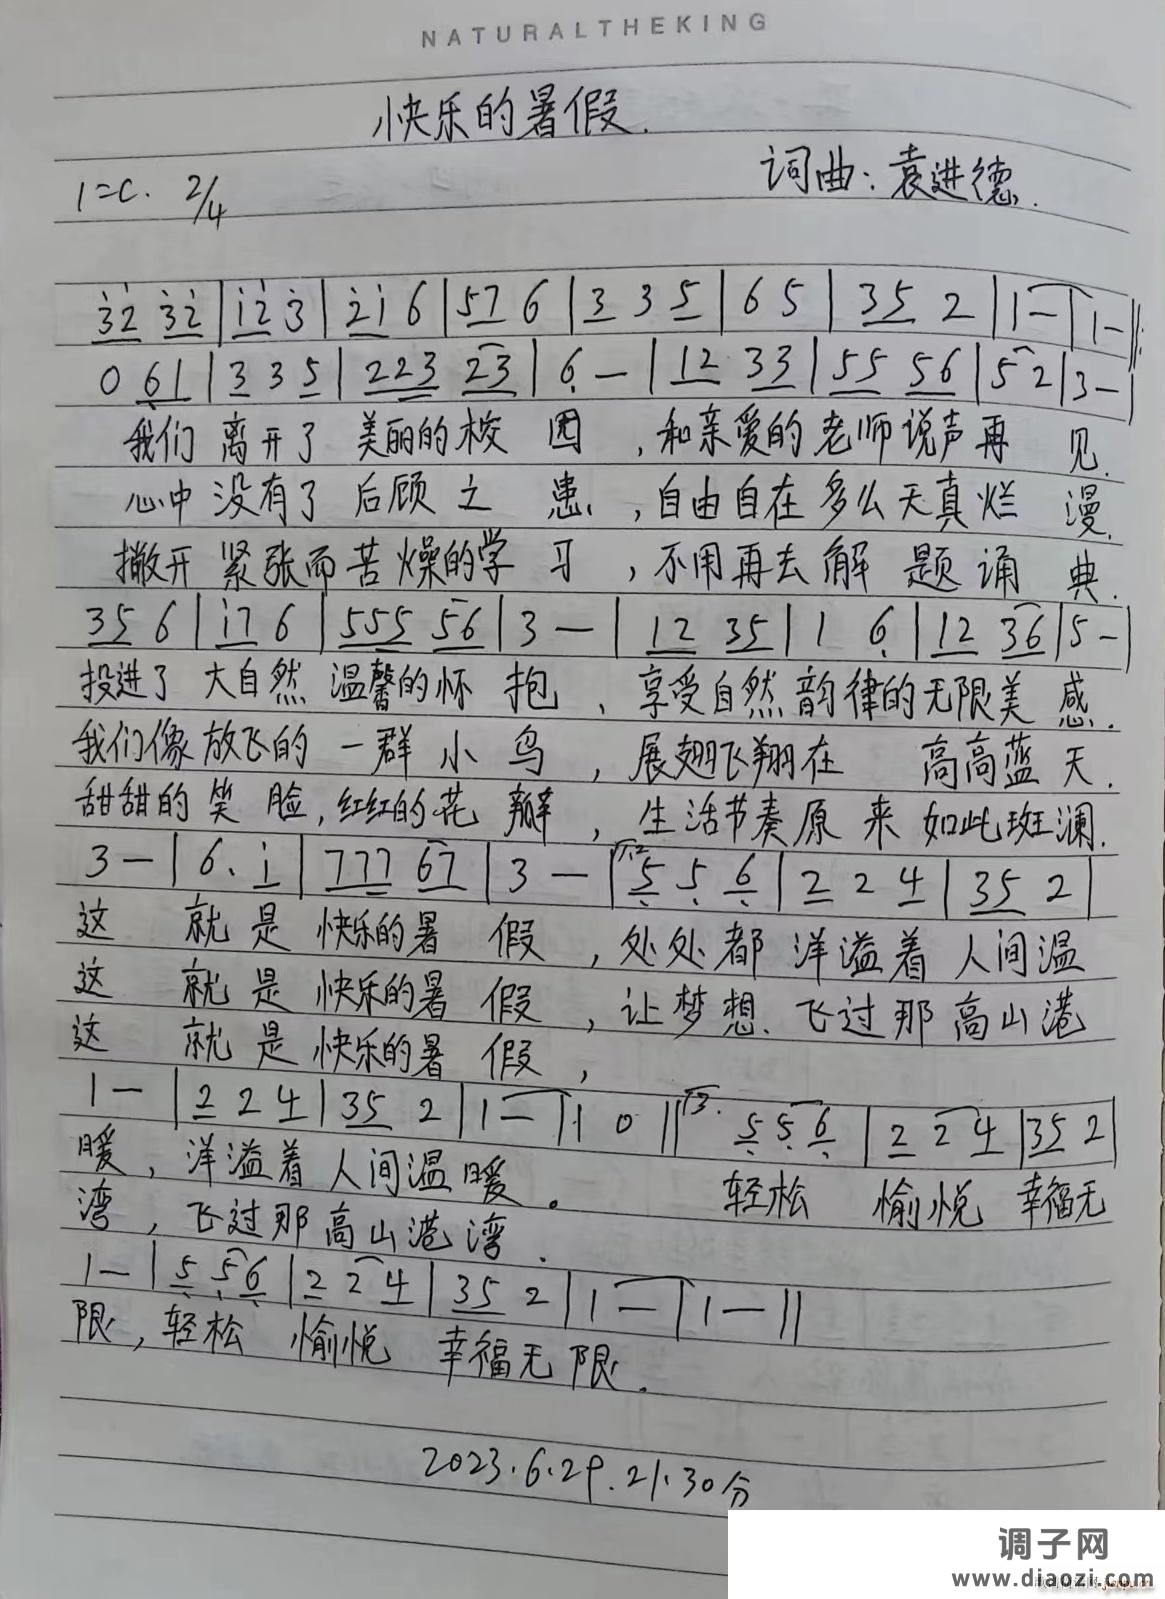 NATURALTHEKING
快乐的暑假.
1=C. 2/4 词曲:袁进德.
3̲2̲ 3̲2̲ | 1̲2̲ 3 | 2̲1̲ 6 | 5̲7̲ 6 | 3̲ 3 5̲ | 6 5 | 3̲5̲ 2 | 1 — | 1 — :||
0 6̲1̲ | 3̲ 3 5̲ | 2̲2̲3̲ 2̲3̲ | 6 — | 1̲2̲ 3̲3̲ | 5̲5̲ 5̲6̲ | 5 2 | 3 — |
我们 离开了 美丽的校 园 ,和亲爱的老师说声再 见.
心中没有了 后顾之 患,自由自在多么天真烂 漫.
撒开紧张而苦燥的学 习 ,不用再去解 题诵 典.
3̲5̲ 6 | 1̲7̲ 6 | 5̲5̲5̲ 5̲6̲ | 3 — | 1̲2̲ 3̲5̲ | 1 6 | 1̲2̲ 3̲6̲ | 5 — |
投进了 大自然 温馨的怀 抱 、享受自然韵律的无限美 感.
我们像放飞的 一群 小 鸟 ,展翅飞翔在 高高蓝 天.
甜甜的 笑 脸,红红的花 瓣 ,生活节奏原 来 如此斑澜.
3 — | 6. 1̲ | 7̲7̲7̲ 6̲7̲ | 3 — | 1.2 5̲ 5 6̲ | 2̲ 2 4̲ | 3̲5̲ 2 |
这 就是 快乐的暑 假 ,处处都 洋溢着 人间温
这 就是 快乐的暑 假 ,让梦想. 飞过那 高山港
这 就是 快乐的暑 假 ,
1 — | 2̲ 2 4̲ | 3̲5̲ 2 | 1 — | 1 0 || 3. 5̲ 5 6̲ | 2̲ 2 4̲ | 3̲5̲ 2 |
暖,洋溢着 人间温 暖。 轻松 愉悦 幸福无
湾,飞过那 高山港 湾.
1 — | 5̲ 5 6̲ | 2̲ 2 4̲ | 3̲5̲ 2 | 1 — | 1 — ||
限,轻松 愉悦 幸福无 限.
2023.6.29.21:30分
调子网
www.diaozi.com